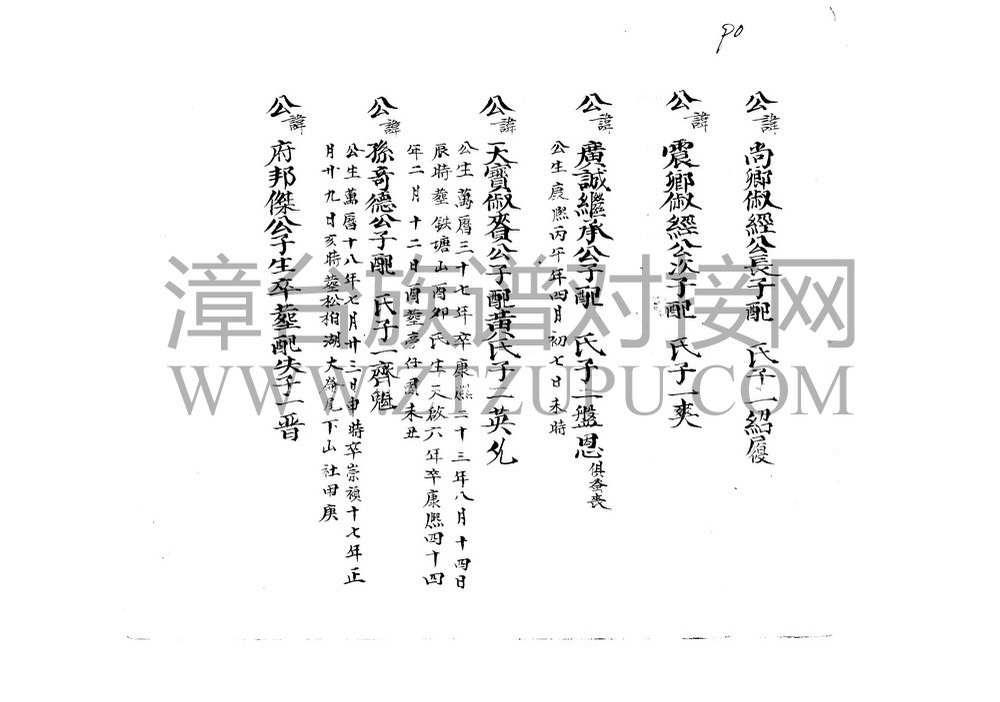 90
公諱尚卿俶經公長子配 氏子一紹履
公諱震卿俶經公次子配 氏子一爽
公諱廣誠繼承公子配 氏子二盤恩俱蚤喪
公生康熙丙午年四月初七日未時
公諱天寶俶賚公子配黃氏子二英允
公生萬曆三十七年卒康熙二十三年八月十四日
辰時塟鉄塘山酉卯氏生天啟六年卒康熙四十四
年二月十二日酉塟亭仔園未丑
公諱孫奇德公子配 氏子二齊魁
公生萬曆十八年七月廿三日申時卒崇禎十七年正
月廿九日亥時塟松柏湖大裕尾下山社甲庚
公諱府邦傑公子生卒塟配失子一晋
漳台族谱对接网
WWW.ZTZUPU.COM